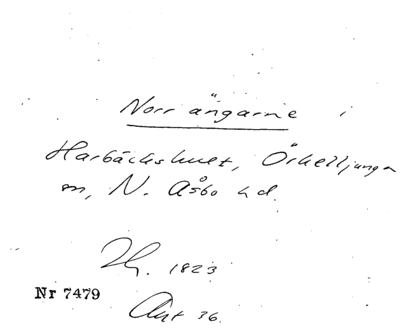 Norrängarne i
Harbäckshult, Örkelljunga
sn, N. Åsbo hd.
1823
Nr 7479
Akt 36.